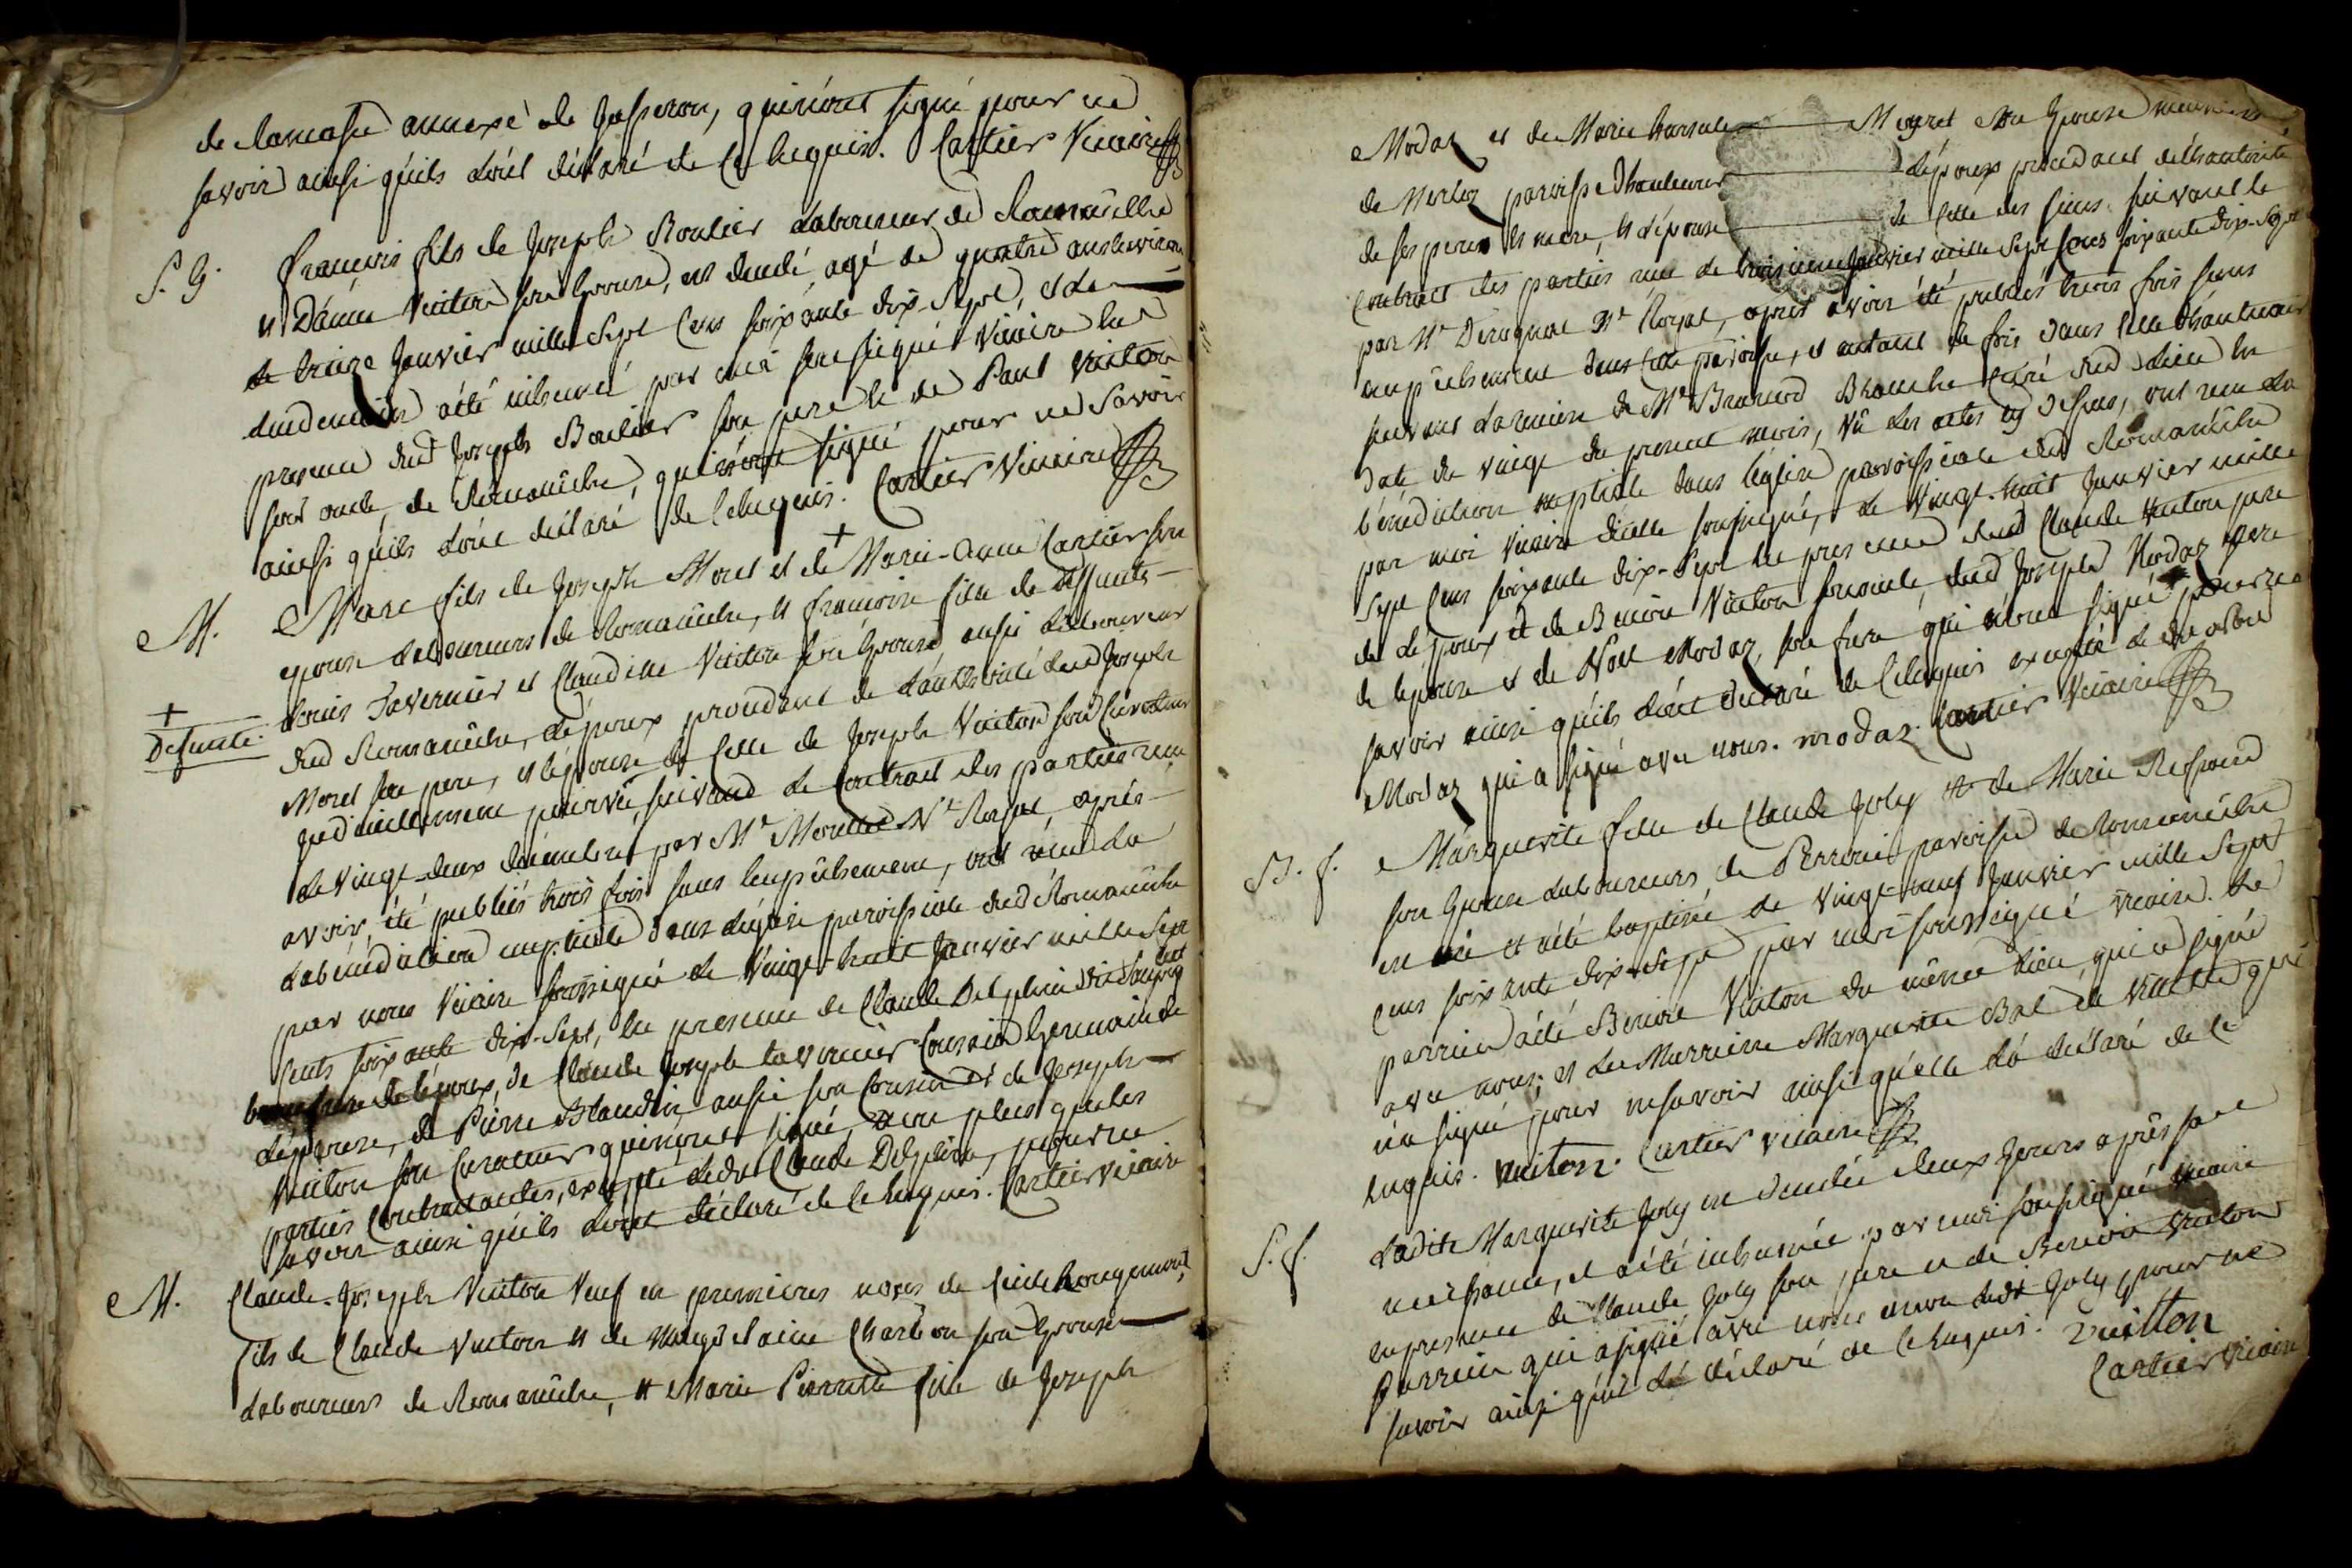 de lamasse annexé de Jasseron, qui n'ont signé pour ne
savoir ainsi qu'ils l'ont déclaré de ce Enquis. Cartier Vicaire
S. G. François fils de Joseph Boulier Laboureur de Romanêche
et d'anne Vuiton son Epouse, est décédé, agé de quatre ans environ
le treize Janvier mille Sept Cens soixante dix-Sept, et le
lendemain a été inhumé par moi soussigné Vicaire En
presence dud Joseph Boulier son pere et de Paul Vuiton
son oncle, de Romanêche, qui n'ont signé pour ne savoir
ainsi qu'ils l'ont déclaré de ce Enquis. Cartier Vicaire
M. Marc fils de Joseph Morel et de + Marie-Anne Cartier son
epouse Laboureurs de Romanêche, et françoise fille de deffunts
+ Defunte. Louis Tavernier et Claudine Vuiton son Epouse, aussi Laboureurs
dud Romanêche, L'époux procédant de L'authorité dud Joseph
Morel son pere, et l'épouse de Celle de Joseph Vuiton son Curateur
judiciellement pourvû, suivand le Contract des parties reçu
le vingt-deux décembre par Me Morellet Nre Royal, après
avoir été publiés trois fois sans Empêchement, ont reçu la
bénédiction nuptiale dans L'église paroissiale dud Romanêche
par nous Vicaire soussigné le Vingt-huit Janvier mille Sept
Cents soixante dix-Sept, En presence de Claude Delphin
de L'époux, de Claude Joseph tavernier Cousin Germain de
L'épouse, de Pierre Blandin aussi son Cousin et de Joseph
Vuiton son Curateur qui n'ont signé, non plus que les
parties Contractantes, excepté ledt Claude Delphin, pour ne
savoir ainsi qu'ils L'ont déclaré de ce Enquis. Cartier Vicaire
M. Claude-Joseph Vuiton Veuf en premieres noces de
fils de Claude Vuiton et de Magdelaine Charbon son Epouse
Laboureurs de Romanêche, et Marie Pierrette fille de Joseph
Modaz et de Marie Mugret son Epouse
de Merloz paroisse d'hautecour L'époux procédant de l'hautorité
de ses pere et mere, et L'épouse de Celle des siens suivant le
Contract des parties reçu le troisieme Janvier mille Sept Cens soixante dix-Sept
par Me Nre Royal, après avoir été publiés trois fois sans
empêchement dans Cette paroisse, et autant de fois dans Celle d'hautecour
suivant La remise de Mre Brunod Blanche Curé dud Lieu En
Date du vingt du present mois, Vû les actes cy dessus, ont reçu La
bénédiction nuptiale dans l'église paroissiale dud Romanêche
par moi Vicaire d'icelle soussigné, le Vingt-huit Janvier mille
Sept Cens soixante dix-Sept En presence dud Claude Vuiton pere
de L'époux et de Benoit Vuiton son oncle, dud Joseph Modaz pere
de l'epouse et de Noël Modaz, son frere qui n'ont signé pour ne
savoir ainsi qu'ils L'ont déclaré de ce Enquis excepté le dit Noel
Modaz qui a signé avec nous. modaz. Cartier Vicaire
B. f. Marguerite fille de Claude Joly et de Marie
son Epouse Laboureurs, de Perrouse paroisse de Romanêche
est née et a été baptisée le vingt-neuf Janvier mille Sept
cens soixante dix-Sept par moi soussigné vicaire. Le
parrein a été Benoit Vuiton du même Lieu, qui a signé
avec nous; et La Marreine Marguerite Bal de Villette qui
n'a signé pour ne savoir ainsi qu'elle L'a déclaré de ce
Enquis. vuiton. Cartier vicaire
S. f. Ladite Marguerite Joly est décédée deux Jours après sa
naissance, et a été inhumée par moi soussigné vicaire
en presence de Claude Joly son pere et de Benoit Vuiton
parrein qui a signé avec nous non ledt Joly pour ne
savoir ainsi qu'il L'a déclaré de ce Enquis. vuiton
Cartier Vicaire